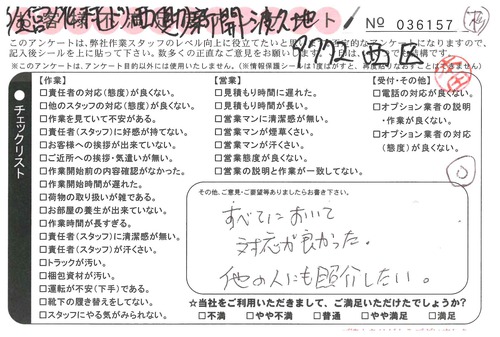 № 036157
このアンケートは、弊社作業スタッフのレベル向上に役立てたいと
記入後シールを上に貼って下さい。数多くの正直なご意見をお願いします。
(※このアンケートは、アンケート目的以外には使用いたしません。)
西区
チェックリスト
【作業】
□責任者の対応(態度)が良くない。
□他のスタッフの対応(態度)が良くない。
□作業を見ていて不安がある。
□責任者(スタッフ)に好感が持てない。
□お客様への挨拶が出来ていない。
□ご近所への挨拶・気遣いが無い。
□作業開始前の内容確認がなかった。
□作業開始時間が遅れた。
□荷物の取り扱いが雑である。
□お部屋の養生が出来ていない。
□作業時間が長すぎる。
□責任者(スタッフ)に清潔感が無い。
□責任者(スタッフ)が汗くさい。
□トラックが汚い。
□梱包資材が汚い。
□運転が不安(下手)である。
□靴下の履き替えをしてない。
□スタッフにやる気がみられない。
【営業】
□見積もり時間に遅れた。
□見積もり時間が長い。
□営業マンに清潔感が無い。
□営業マンが煙草くさい。
□営業マンが汗くさい。
□営業態度が良くない。
□営業の説明と作業が一致してない。
【受付・その他】
□電話の対応が良くない。
□オプション業者の説明
・作業が良くない。
□オプション業者の対応
(態度)が良くない。
その他、ご意見・ご要望等ありましたらお書き下さい。
すべてにおいて
対応が良かった。
他の人にも照介したい。
☆当社をご利用いただきまして、ご満足いただけたでしょうか?
□不満 □やや不満 □普通 □やや満足 □満足